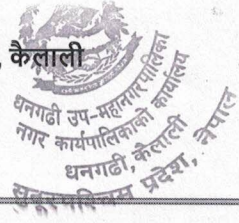 , कैलाली
धनगढी उप-महानगरपालिका
नगर कार्यपालिकाको कार्यालय
धनगढी, कैलाली
सुदूरपश्चिम प्रदेश, नेपाल